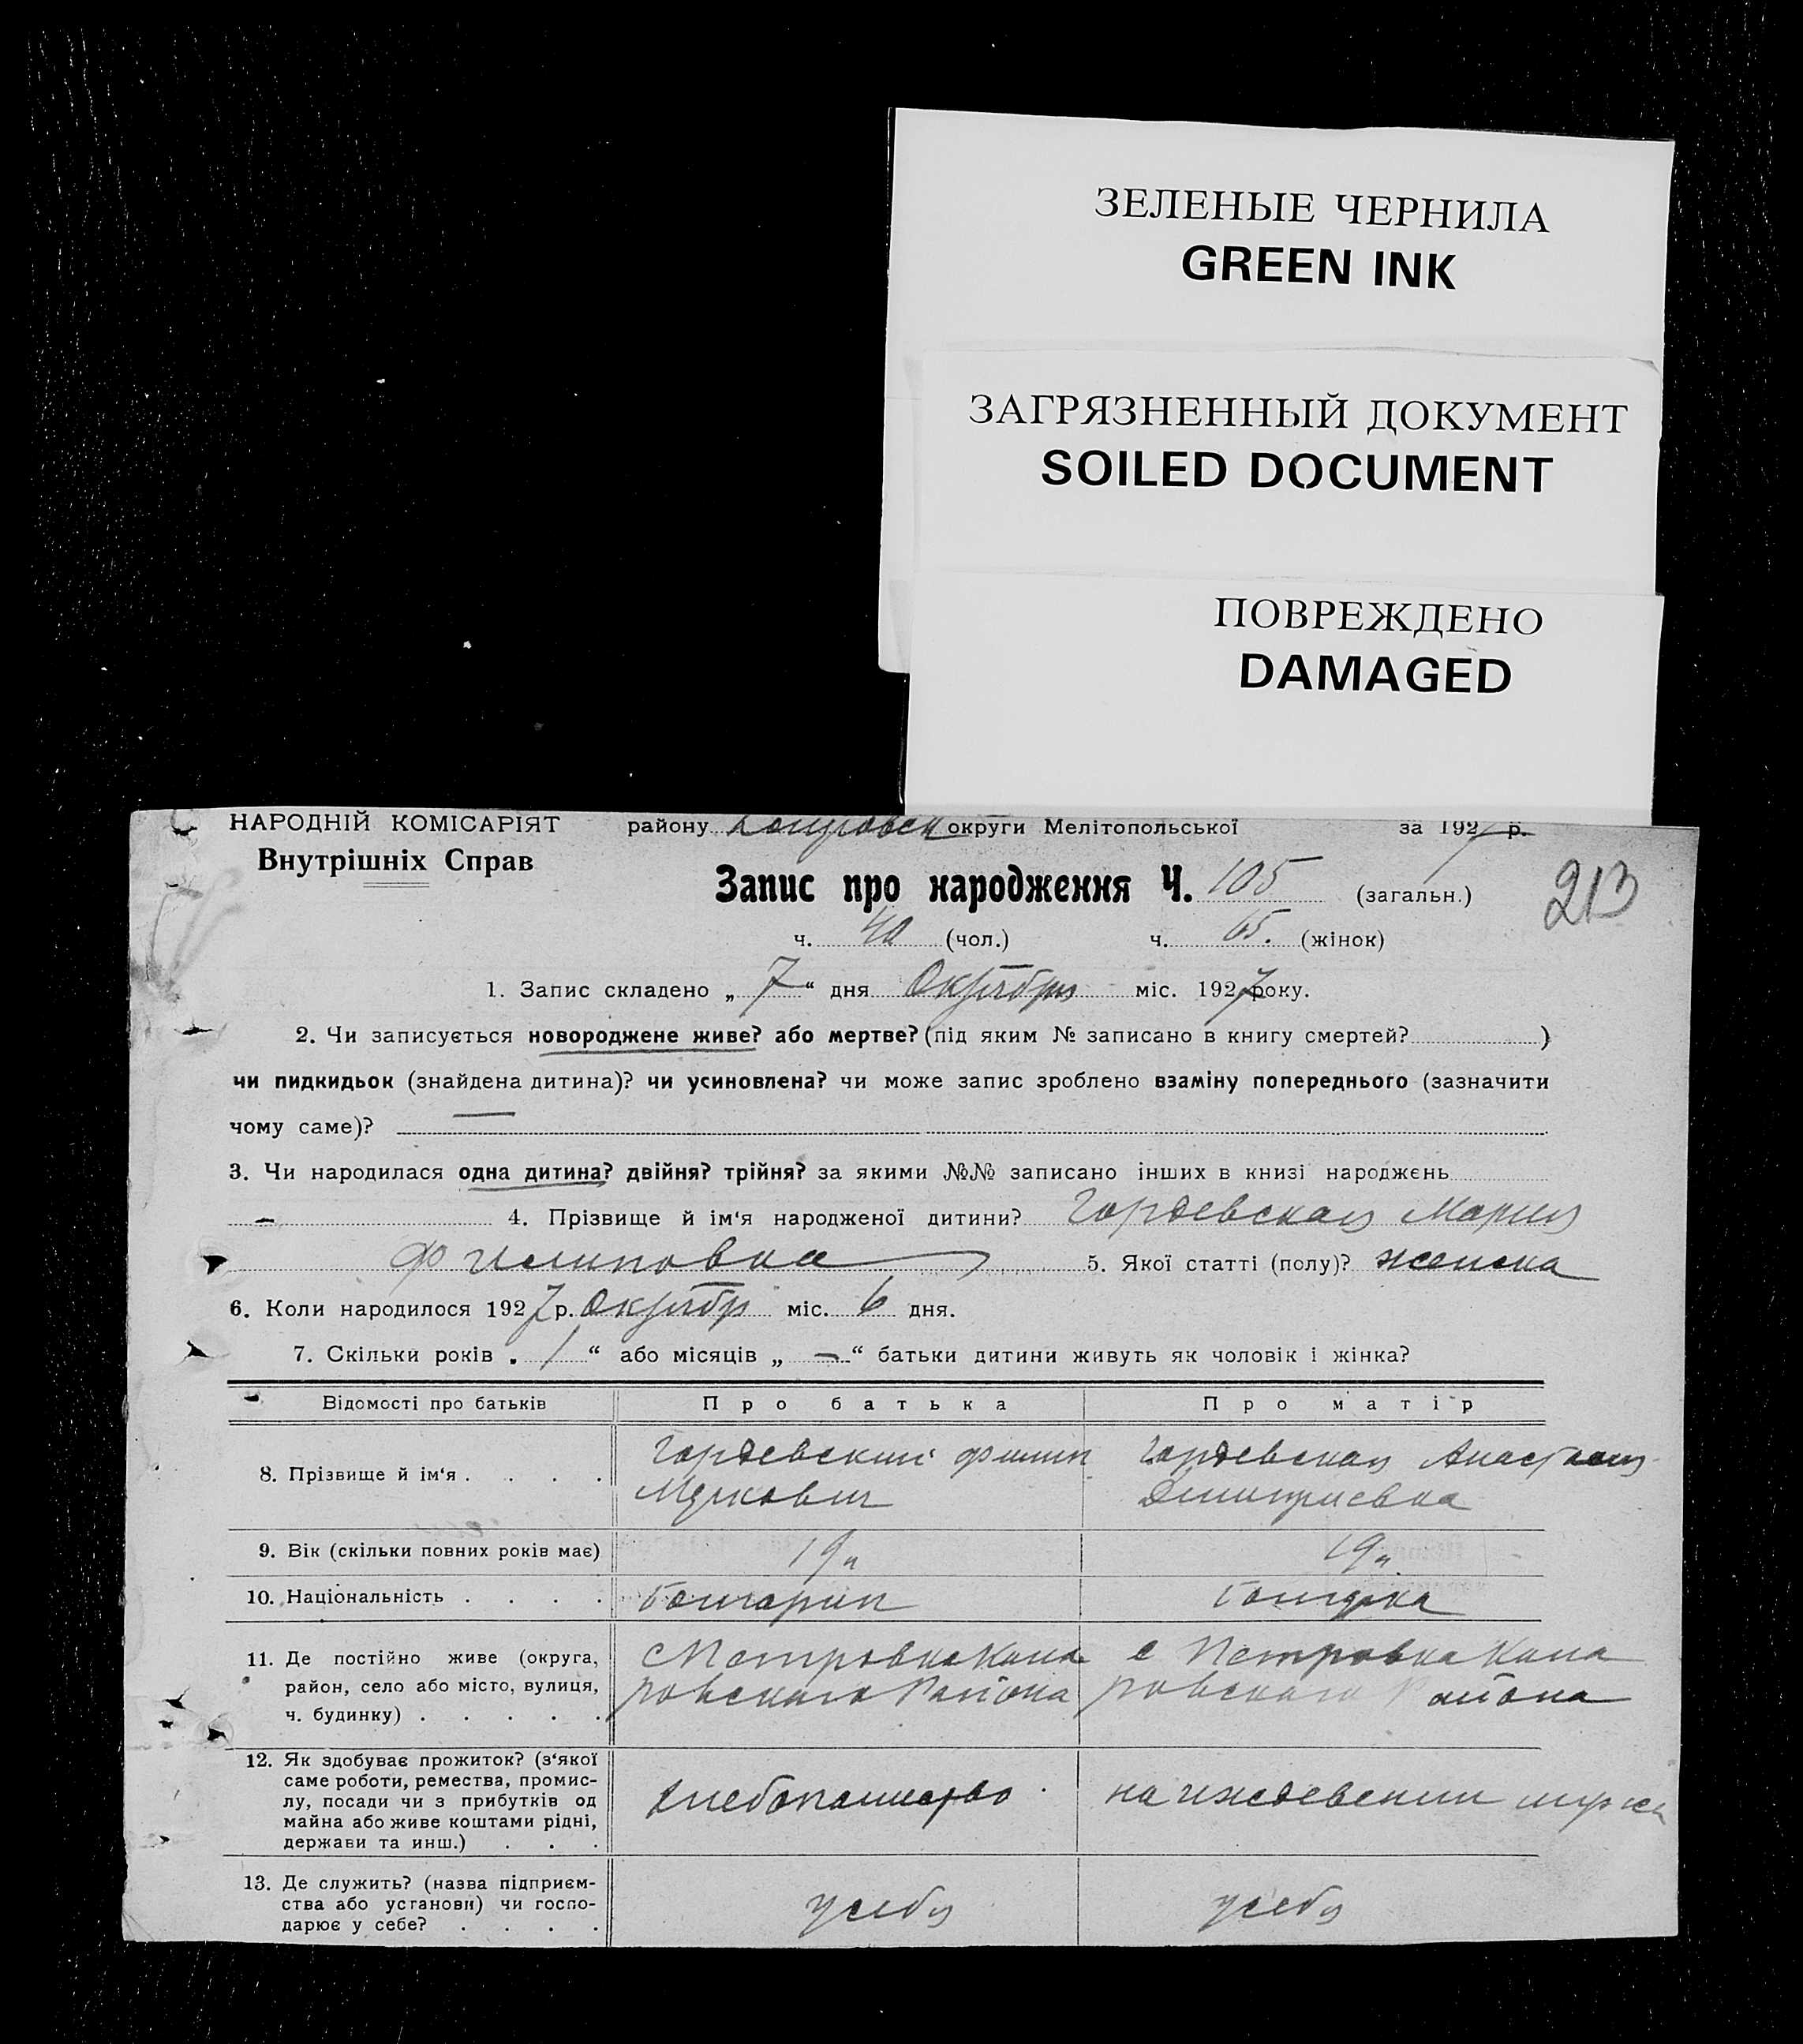 ЗЕЛЕНЫЕ ЧЕРНИЛА
GREEN INK
ЗАГРЯЗНЕННЫЙ ДОКУМЕНТ
SOILED DOCUMENT
ПОВРЕЖДЕНО
DAMAGED
НАРОДНІЙ КОМІСАРІЯТ району округи Мелітопольської за 1927 р.
Внутрішніх Справ
Запис про народження Ч. 105 (загальн.) 213
ч. 40 (чол.) ч. 65. (жінок)
1. Запис складено „ 7 “ дня Октября міс. 1927 року.
2. Чи записується новороджене живе? або мертве? (під яким № записано в книгу смертей? )
чи пидкидьок (знайдена дитина)? чи усиновлена? чи може запис зроблено взаміну попереднього (зазначити
чому саме)? —
3. Чи народилася одна дитина? двійня? трійня? за якими №№ записано інших в книзі народжень
— 4. Прізвище й ім‘я народженої дитини? Гордевская Мария
Филиповна 5. Якої статті (полу)? женска
6. Коли народилося 1927 р. Октябр міс. 6 дня.
7. Скільки років „ 1 “ або місяців „ — “ батьки дитини живуть як чоловік і жінка?
Відомості про батьків Про батька Про матір
8. Прізвище й ім‘я . . . . Гордевский Филип Гордевская Анастасия
Дмитриевна
9. Вік (скільки повних років має) 19 л 19 л
10. Національність . . . . Болгарин Болгарка
11. Де постійно живе (округа,
район, село або місто, вулиця,
ч. будинку) . . . . .
с Петровка
ровского Района
с Петровка
ровского Района
12. Як здобуває прожиток? (з‘якої
саме роботи, ремества, промис-
лу, посади чи з прибутків од
майна або живе коштами рідні,
держави та инш.) . . .
хлебопашество на иждевении мужа
13. Де служить? (назва підприєм-
ства або установи) чи госпо-
дарює у себе? . . . .
у себя у себя